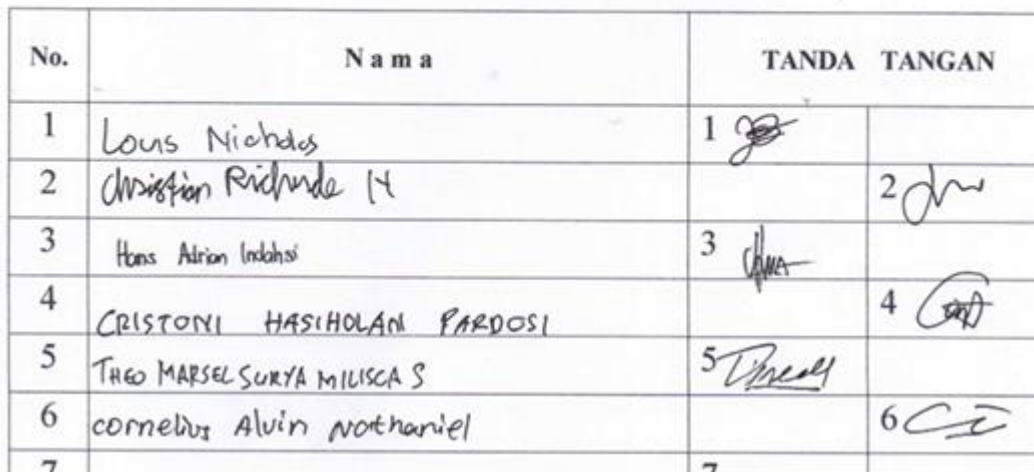 No. Nama TANDA TANGAN
1 Louis Nicholas 1
2 Christian Richarde H 2
3 Hans Adrian 3
4 CRISTONI HASIHOLAN PARDOSI 4
5 THEO MARSEL SURYA MILISCA S 5
6 cornelius Alvin Nathaniel 6
7 7